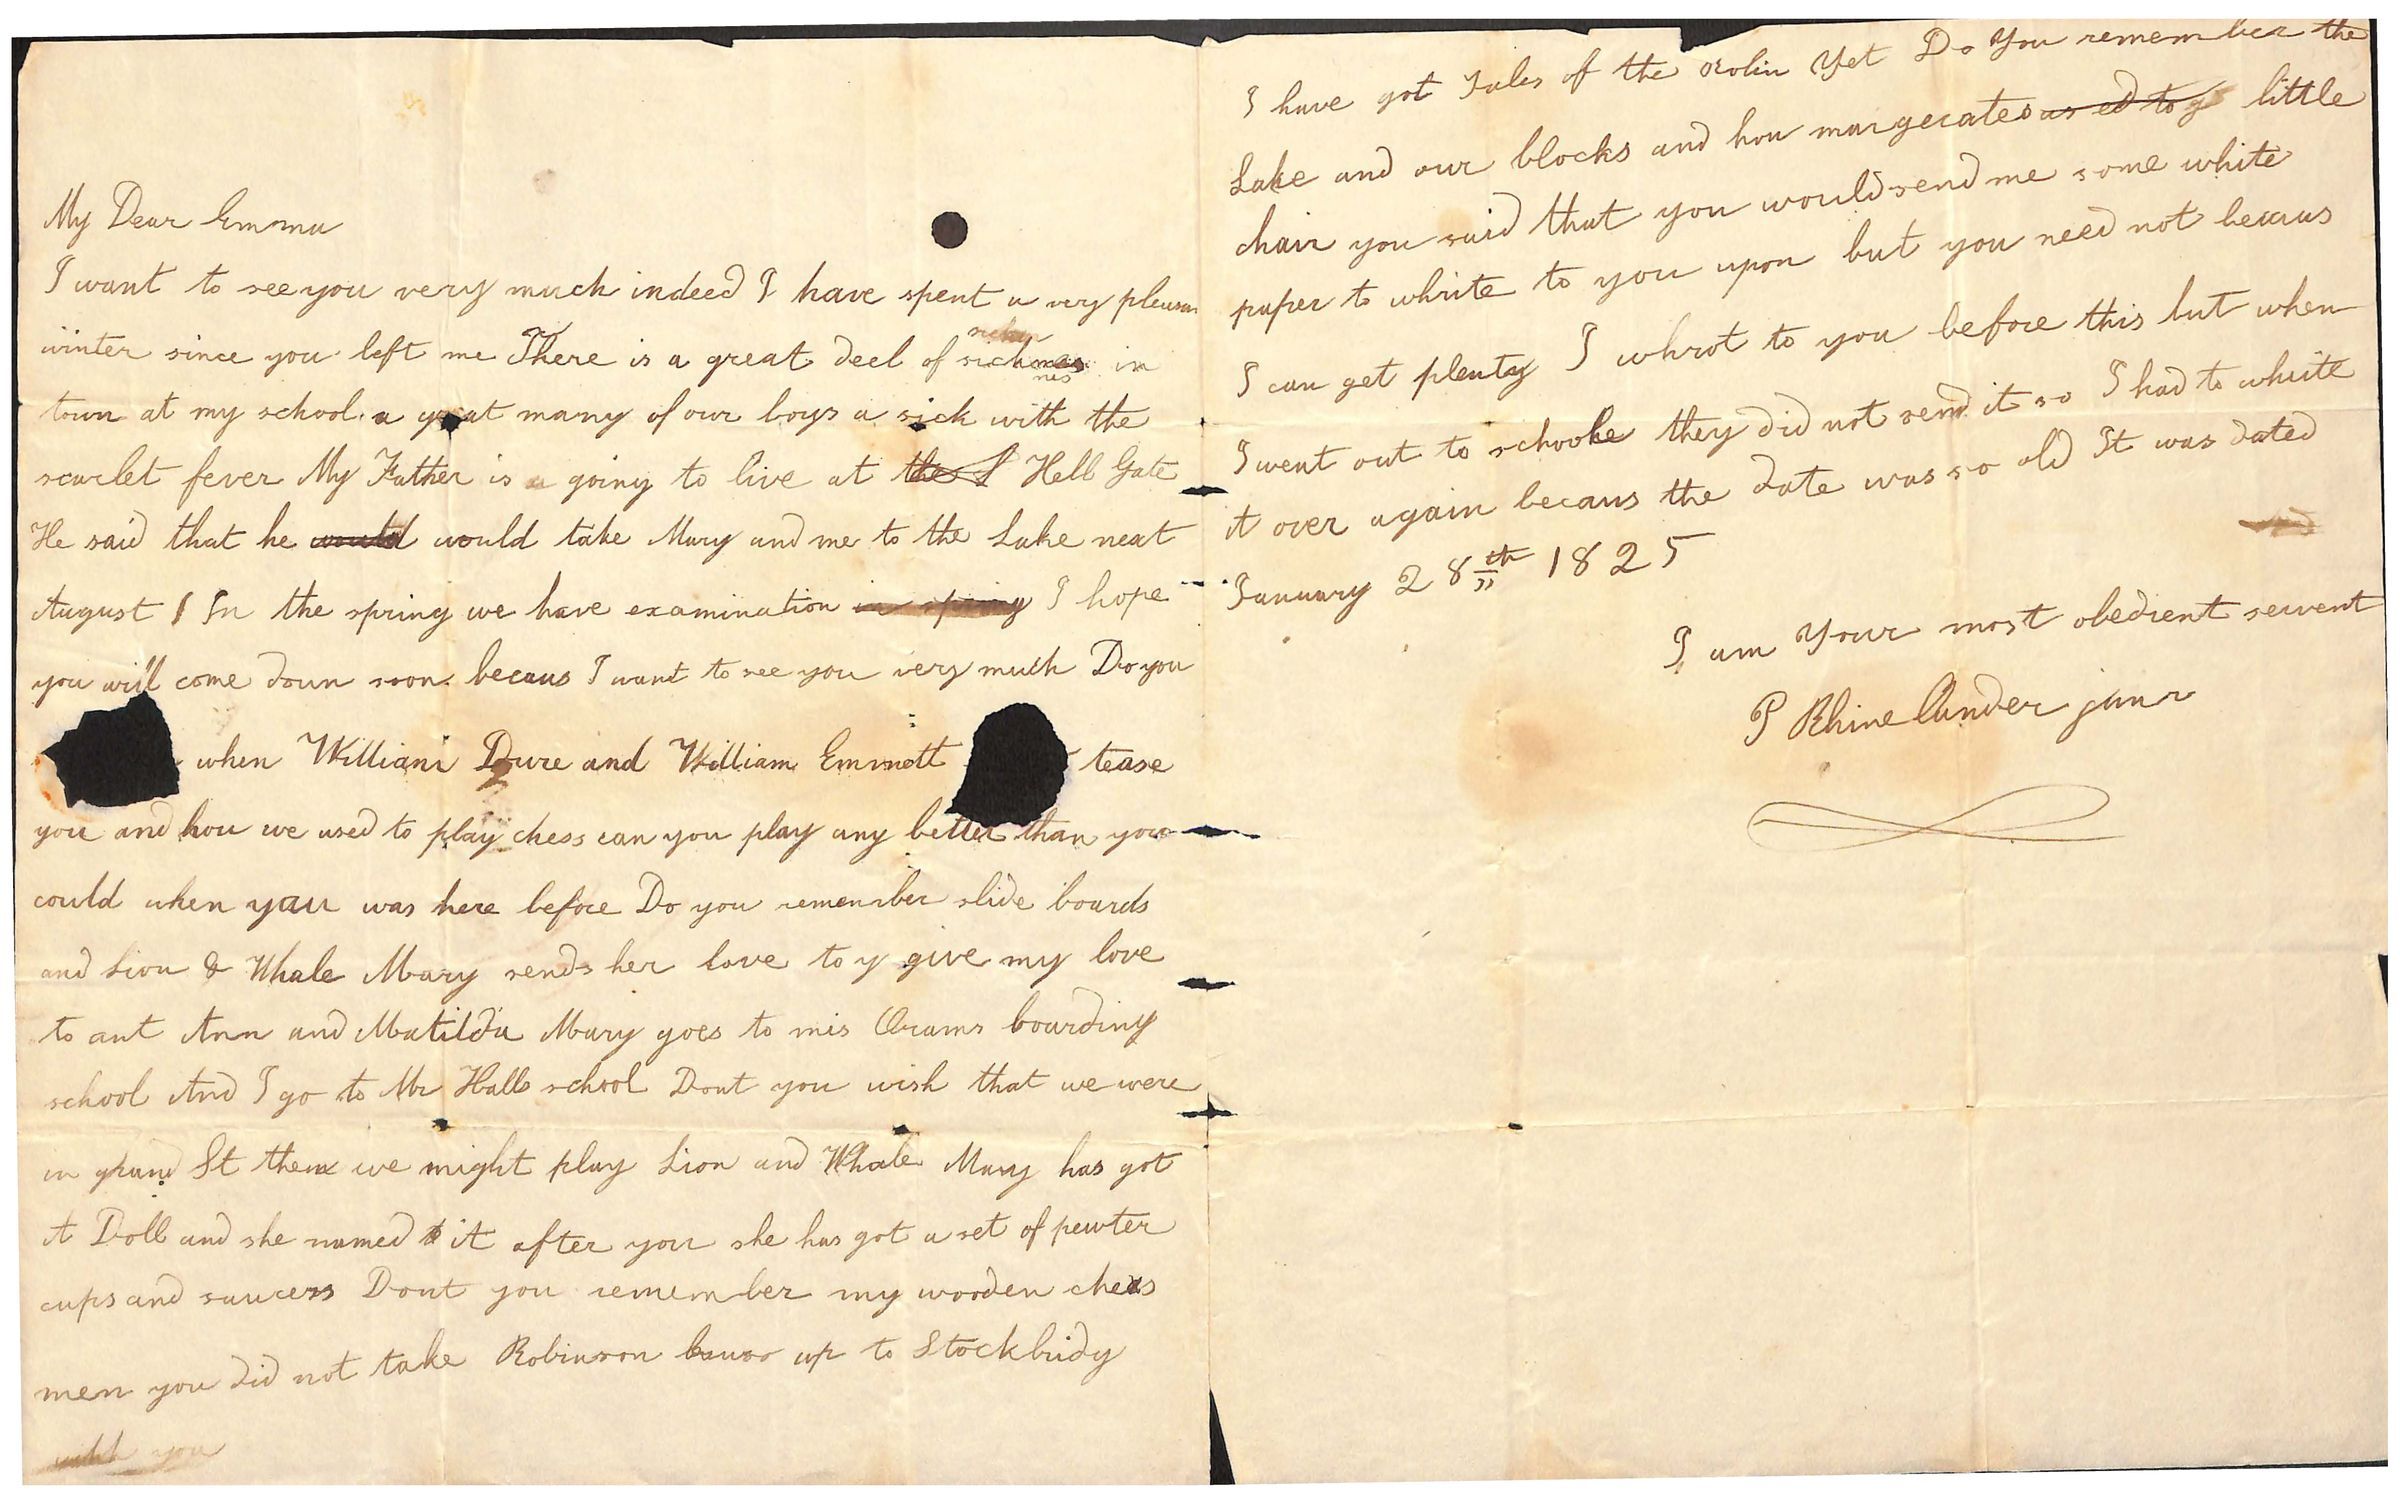 My Dear Emma
I want to see you very much indeed I have spent a very pleasan
winter since you left me There is a great deel of sickness in
town at my school a great many of our boys a sick with the
scarlet fever My Father is a going to live at the Hell Gate
He said that he would would take Mary and me to the Lake next
August In the spring we have examination in spring I hope
you will come down soon becaus I want to see you very much Do you
when William and William Emmett tease
you and how we used to play chess can you play any better than you
could when you was here before Do you remember slide boards
and Lion & Whale Mary sends her love to y give my love
to ant Ann and Matilda Mary goes to mis Orams boarding
school And I go to Mr Halls school Dont you wish that we were
in grand St then we might play Lion and Whale Mary has got
A Doll and she named it after you she has got a set of pewter
cups and saucers Dont you remember my wooden chess
men you did not take Robinson up to Stockbridg
with you
I have got Tales of the Robin Yet Do You remember the
Lake and our blocks and how little
chair you said that you would send me some white
paper to white to you upon but you need not becaus
I can get plenty I whrot to you before this but when
I went out to schoole they did not send it so I had to white
it over again becaus the date was so old It was dated
January 28th 1825
I am Your most obedient servent
P Rhinelander junr